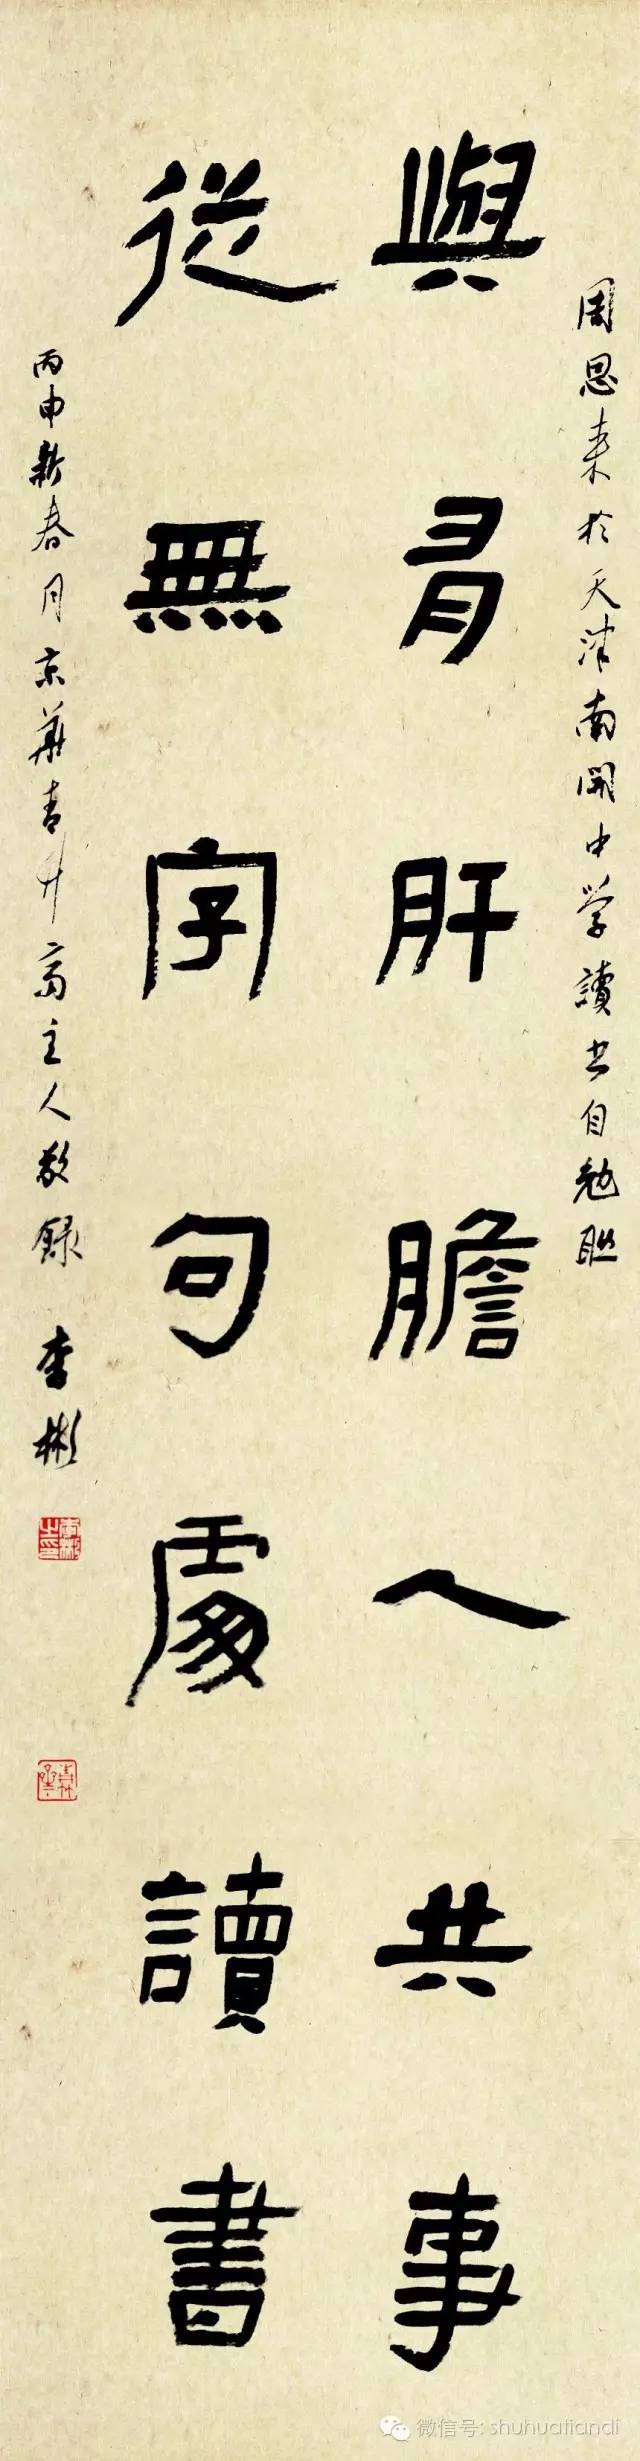 周恩来於天津南開中学讀书自勉联
與有肝膽人共事
從無字句處讀書
丙申新春月京華青升斋主人敬録 李彬
李彬之印
微信号: shuhuatiandi